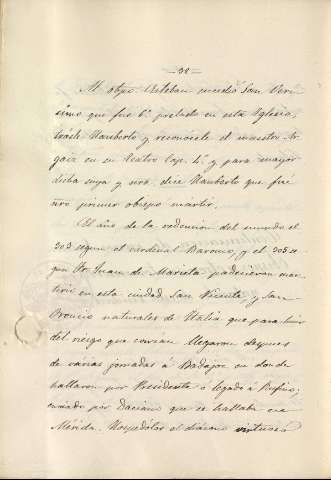 — 32 —
Al obpo. Esteban sucedió San Verí-
simo que fue 6.º prelado en esta Iglesia,
tráele Hauberto y reconócele el maestro Ar-
gaiz en su Teatro Cap. 1.º y para mayor
dicha suya y nra. dice Hauberto que fué
nro primer obispo mártir.
El año de la redencion del mundo el
303 segun el cardenal Baronio, y el 305 se
gun Fr. Juan de Marieta padecieron mar
tirio en esta ciudad San Vicente y San
Oroncio naturales de Italia que para huir
del riesgo que corrian llegaron despues
de varias jornadas á Badajoz en donde
hallaron por Presidente o legado á Rufino,
enviado por Daciano que se hallaba en
Mérida. Hospedólos el diácono virtuoso